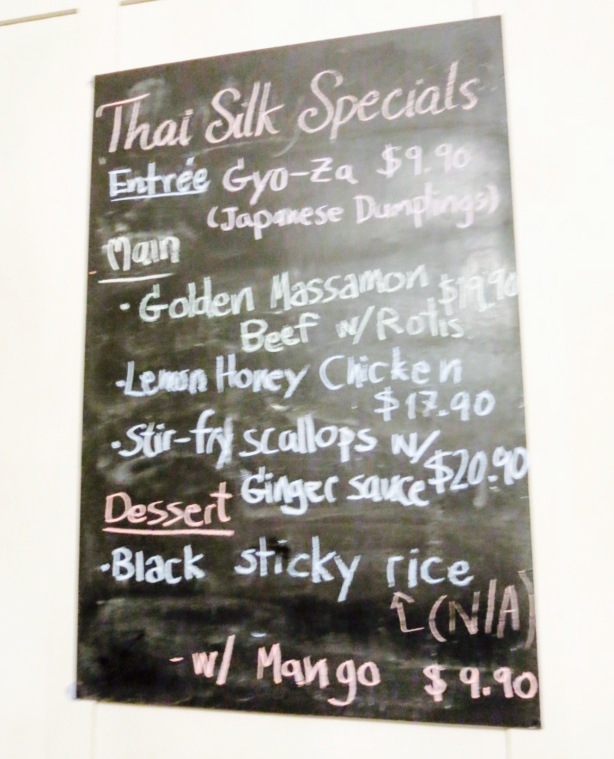 Thai Silk Specials
Entrée Gyo-Za $9.90
(Japanese Dumplings)
Main
· Golden Massamon $19.90
Beef w/Rotis
·Lemon Honey Chicken
$17.90
·Stir-fry scallops w/
Ginger sauce $20.90
Dessert
·Black sticky rice
(N/A)
-w/ Mango $9.90